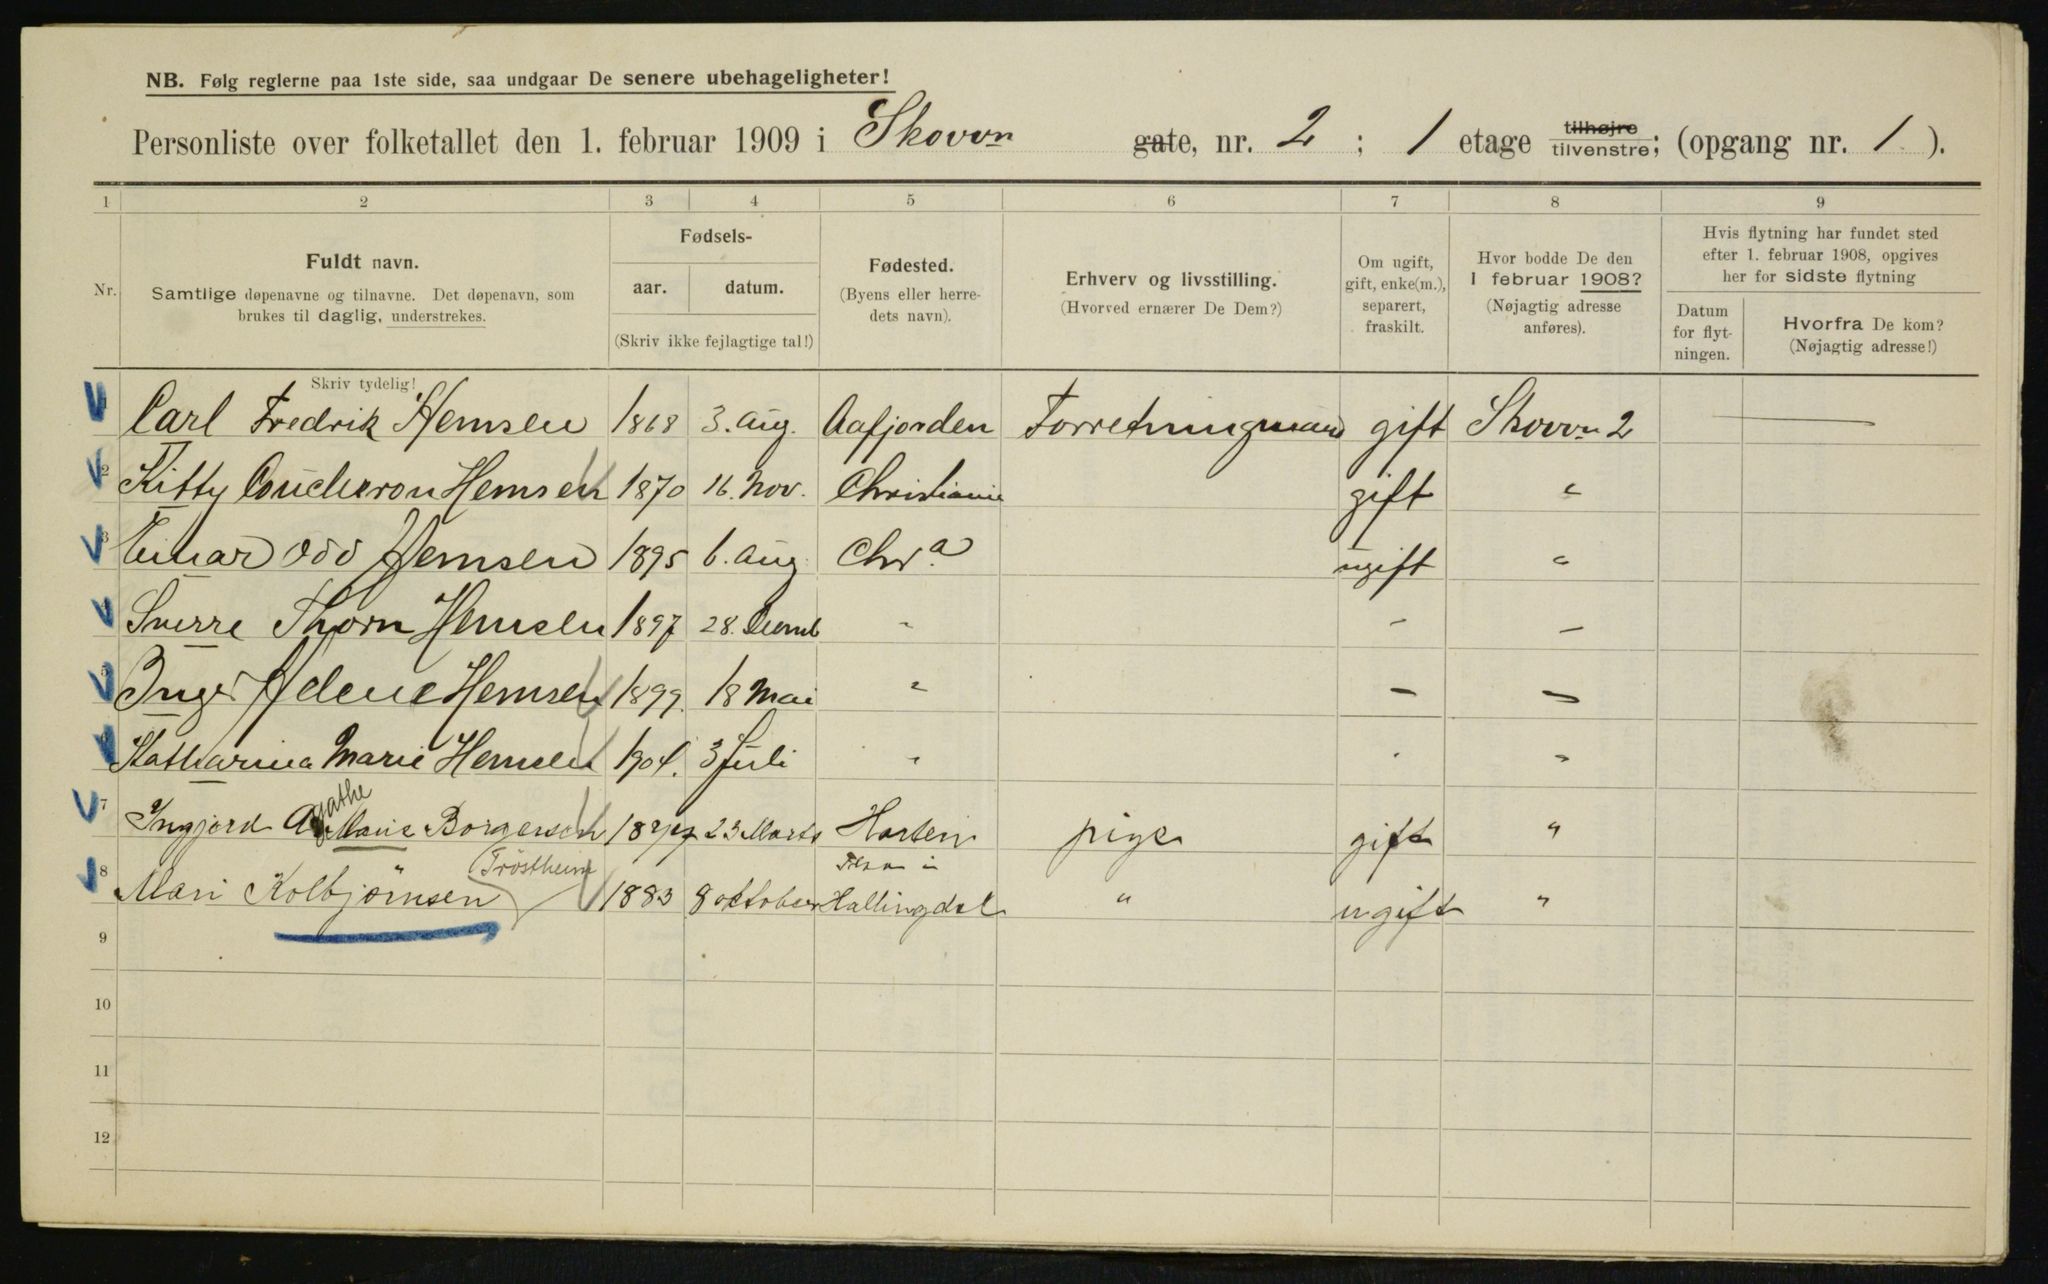 NB. Følg reglerne paa 1ste side, saa undgaar De senere ubehageligheter!
Personliste over folketallet den 1. februar 1909 i Skovvn gate, nr. 2 ; 1 etage tilhøjre tilvenstre; (opgang nr. 1 ).
1 2 3 4 5 6 7 8 9
Nr.
Fuldt navn.
Samtlige døpenavne og tilnavne. Det døpenavn, som
brukes til daglig, understrekes.
Fødsels-
aar. datum.
(Skriv ikke fejlagtige tal!)
Fødested.
(Byens eller herre-
dets navn).
Erhverv og livsstilling.
(Hvorved ernærer De Dem?)
Om ugift,
gift, enke(m.),
separert,
fraskilt.
Hvor bodde De den
1 februar 1908?
(Nøjagtig adresse
anføres).
Hvis flytning har fundet sted
efter 1. februar 1908, opgives
her for sidste flytning
Datum
for flyt-
ningen.
Hvorfra De kom?
(Nøjagtig adresse!)
Skriv tydelig!
Carl Fredrik Hemsen 1868 3. aug. Aafjorden Forretningmand gift Skovvn 2 —
2 Kitty Coucheron Hemsen 1870 16. Nov. Christiania gift "
3 Einar Odd Hemsen 1895 6. aug. Chr.a ugift "
Sverre Thorn Hemsen 1897 28. " - -
5 Inger Helene Hemsen 1899. 18 Mai " - -
6 Katharina Marie Hemsen 1904. 3 Juli " " "
7 Ingjerd Agathe Marie Borgersen 23 Marts Horten pige gift "
8 Mari Kolbjørnsen Tröstheim 1883 8 oktober Hallingdal " ugift "
9
10
11
12